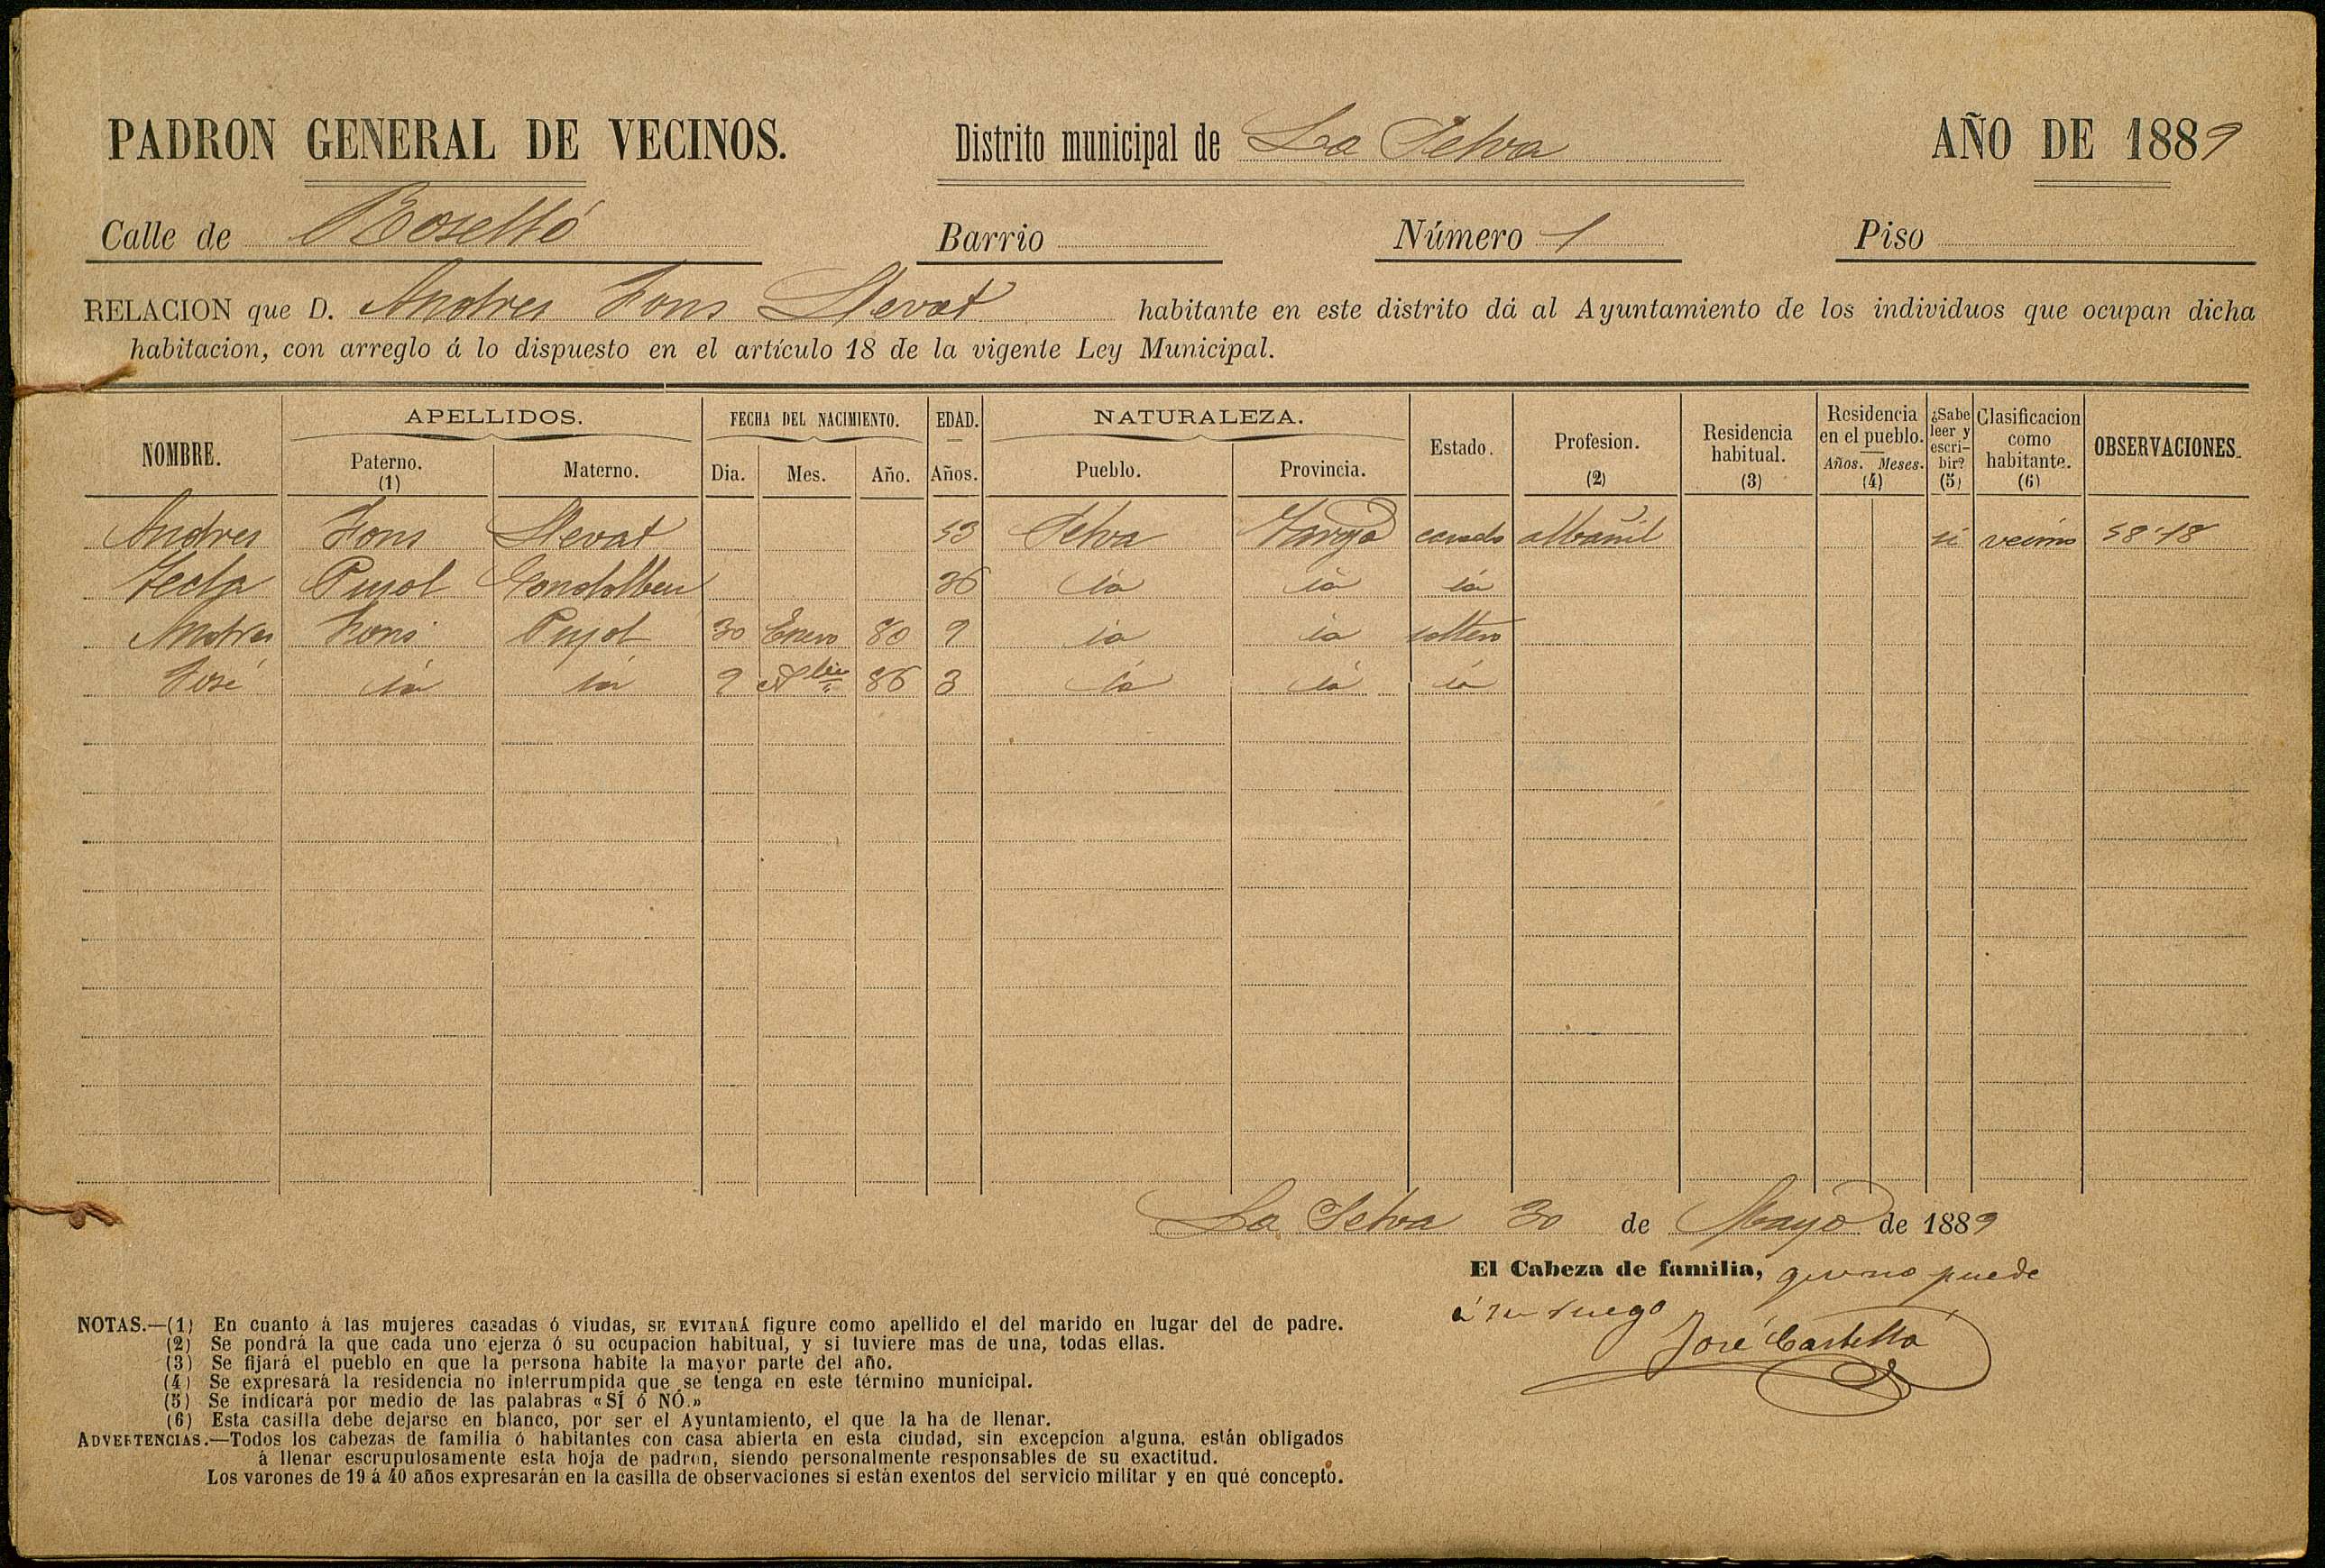 PADRON GENERAL DE VECINOS. Distrito municipal de La Selva AÑO DE 1889
Calle de Roselló Barrio Número 1 Piso
RELACION que D. Andres Fons Llevat habitante en este distrito dá al Ayuntamiento de los individuos que ocupan dicha
habitacion, con arreglo á lo dispuesto en el artículo 18 de la vigente Ley Municipal.
NOMBRE. APELLIDOS. Paterno. (1) Materno. FECHA DEL NACIMIENTO. Dia. Mes. Año. EDAD. Años. NATURALEZA. Pueblo. Provincia. Estado. Profesion. (2) Residencia habitual. (3) Residencia en el pueblo. Años. Meses. (4) ¿Sabe leer y escribir? (5) Clasificacion como habitante. (6) OBSERVACIONES.
Andres Fons Llevat 53 Selva Tarrga casado albañil si vecino 58'18
Tecla Pujol 36 id id id
Andres Fons Pujol 30 Enero 80 9 id id soltero
José id id 9 86 3 id id id
La Selva 30 de Mayo de 1889
El Cabeza de familia, que no puede
á su ruego
José Castelló
NOTAS.—(1) En cuanto á las mujeres casadas ó viudas, SE EVITARÁ figure como apellido el del marido en lugar del de padre.
(2) Se pondrá la que cada uno ejerza ó su ocupacion habitual, y si tuviere mas de una, todas ellas.
(3) Se fijará el pueblo en que la persona habite la mayor parte del año.
(4) Se expresará la residencia no interrumpida que se tenga en este término municipal.
(5) Se indicará por medio de las palabras «SÍ ó NÓ.»
(6) Esta casilla debe dejarse en blanco, por ser el Ayuntamiento, el que la ha de llenar.
ADVERTENCIAS.—Todos los cabezas de familia ó habitantes con casa abierta en esta ciudad, sin excepcion alguna, están obligados
á llenar escrupulosamente esta hoja de padron, siendo personalmente responsables de su exactitud.
Los varones de 19 á 40 años expresarán en la casilla de observaciones si están exentos del servicio militar y en qué concepto.